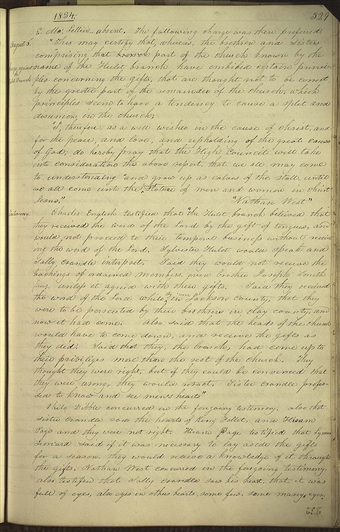 1834.
"This may certify that, whereas, the brethren and sisters
comprising that branch part of the church known by the
name of the Hulet branch have imbibed certain princi-
ples concerning the gifts, that are thought not to be correct
by the greater part of the remainder of the church, which
principles seem to have a tendency to cause a split and
disunion in the church,
I, therefore, as a well wisher in the cause of Christ, and
for the peace, and love, and upholding of the great cause
of God, do hereby pray that the High Council will take
into consideration the above report, that we all may come
to understanding and grow up as calves of the stall, until
we all come unto the stature of men and women in Christ
Jesus."
"Nathan West"
Charles English testified that "the Hulet branch believed that
they received the word of the Lord by the gift of tongues, and
would not proceed to their temporal business without receiv-
ing the word of the Lord. Sylvester Hulet would speak and
Sally Crandle interpret. Said they would not receive the
teachings of ordained members, even brother Joseph Smith
Jr., unless it agreed with their gifts. Said they received
the word of the Lord while in Jackson County, that they
were to be persecuted by their brethren in Clay County, and
now it had come. Also said that the heads of the church
would have to come down and receive the gifts as
they did. Said that they, the branch, had come up to
their privileges more than the rest of the church. They
thought they were right, but if they could be convinced that
they were wrong, they would retract. Sister Crandle profes-
sed to know and see men's hearts."
Philo Dibble concurred in the foregoing testimony, also that
for a season they would receive a knowledge of it through
the gifts. Nathan West concurred in the foregoing testimony.
also testified that Sally Crandle saw his heart, that it was
full of eyes, also eyes in other hearts, some few, some many eyes,